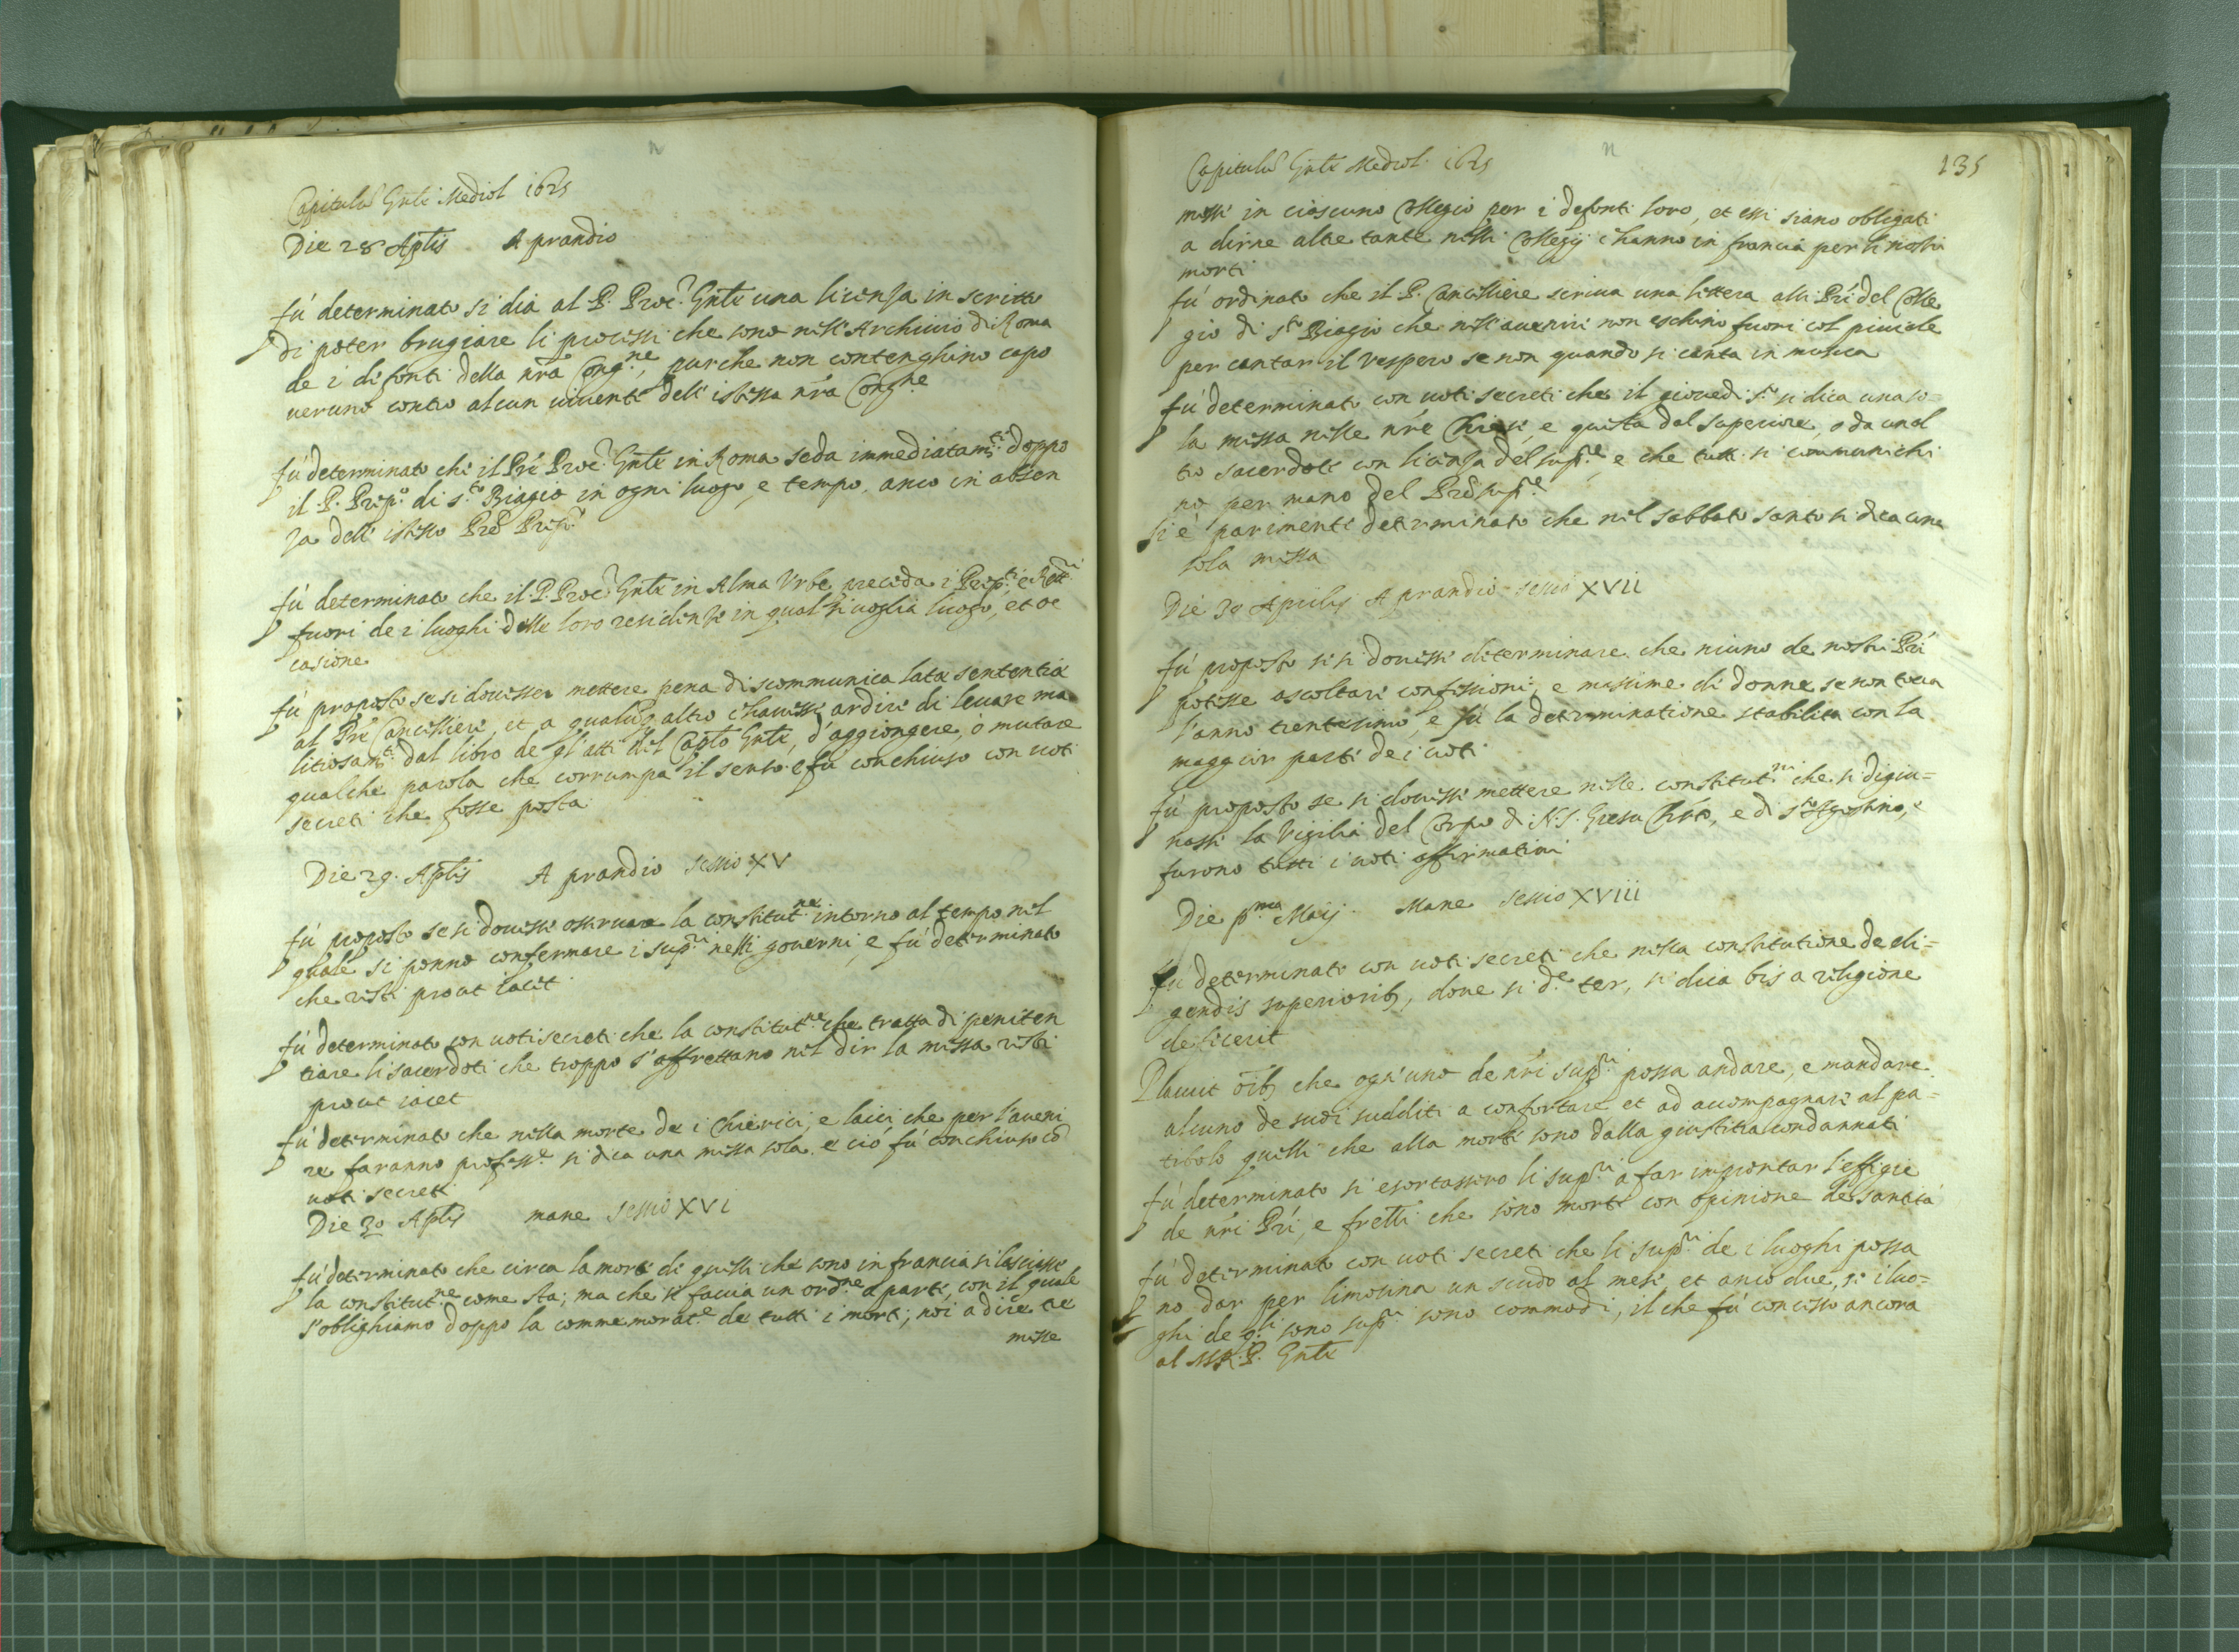 Capitulũ Gnłe Mediol 1625
Die 28 Aplis A prandio
fú determinato si dia al P. Proc.r Gnłe una licenza in scritto
di poter brugiare li processi che sono nell'Archivio di Roma
de i difonti della nrã Cong.ne, purche non contenghino capo
veruno contro alcun vivente dell'istessa nrã Congne
fú determinato che il Prẽ Proc.r Gnłe in Roma seda immediatam.te doppo
il P. Prep.o di s.to Biagio in ogni luogo, e tempo, anco in absen
za dell'istesso Prẽ Prep.o
fú determinato che il P. Proc.r Gnłe in Alma Urbe preceda i Prep.ti e Rett.ri
fuori de i luoghi delle loro residenze in qual si voglia luogo, et oc
casione
fú proposto se si dovesser mettere pena di scommunica latæ sententiæ
al Prẽ Cancelliere, et a qualunq altro c'havesse ardire di levare ma
litiosam.te dal libro de gl'atti del Caplo Gnłe, d'aggiongere, ò mutare
qualche parola che corrumpa il senso e fú conchiuso con voti
secreti che fosse posta
Die 29. Aplis A prandio sessio XV
fú proposto se si dovesse osservare la constitut.ne intorno al tempo nel
quale si ponno confermare i sup.ri nelli governi, e fú determinato
che resti prout iacet
fú determinato con voti secreti che la constitut.ne che tratta di peniten
tiare li sacerdoti che troppo s'affrettano nel dir la messa resti
prout iacet
fú determinato che nella morte de i Chierici, e laici che per l'aveni
re faranno profess.e si dica una messa sola, e ciò fú conchiuso cõ
voti secreti
Die 30 Aplis mane sessio XVI
fú determinato che circa la morte di quelli che sono in francia si lasciasse
la constitut.ne come sta; ma che si faccia un ord.ne a parte, con il quale
s'oblighiamo doppo la commemorat.e de tutti i morti; noi a dire tre
messe
Capitulũ Gnłe Mediol. 1625
135
messe in ciascuno Collegio per i defonti loro, et essi siano obligati
a dirne altre tante nelli Collegij c'hanno in francia per li nostri
morti
fú ordinato che il P. Cancelliere scriva una lettera alli Prĩ del Colle
gio di s.to Biagio che nell'avenire non eschino fuori col piviale
per cantar il Vespero se non quando si canta in musica
fú determinato con voti secreti che il giovedi s.to si dica una so=
la messa nelle nrẽ Chiese, e questa dal superiore, o da un al
tro sacerdote con licenza del sup.re e che tutti si communichi
no per mano del Prẽ sup.re
si è parimente determinato che nel sabbato santo si dica una
sola messa
Die 30 Aprilis A prandio sessio XVII
fú proposto se si dovesse determinare che niuno de nostri Prĩ
potesse ascoltare confessioni, e massime di donne se non tocca
l'anno trentesimo, e fú la determinatione stabilita con la
maggior parte de i voti
fú proposto se si dovesse mettere nelle constitut.ni che si digiu=
nasse la Vigilia del Corpo di N.S. Giesu Chrõ, e di s.to Agostino, e
furono tutti i voti affirmativi
Die p.ma Maij. Mane sessio XVIII
fú determinato con voti secreti che nella constitutione de eli=
gendis superiorib, dove si d.e ter, si dica bis a religione
defecerit
Placuit oĩb che ogn'uno de nrĩ sup.ri possa andare, e mandare
alcuno de suoi sudditi a confortare et ad accompagnare al pa=
tibolo quelli che alla morte sono dalla giustitia condannati
fú determinato si esortassero li sup.ri a far improntar l'effigie
de nrĩ Prĩ, e fretti che sono morti con opinione de santità
fú determinato con voti secreti che li sup.ri de i luoghi possa
no dar per limosina un scudo al mese, et anco due, se i luo=
ghi de q.li sono sup.ri sono commodi, il che fú concesso ancora
al M.R.P. Gnłe